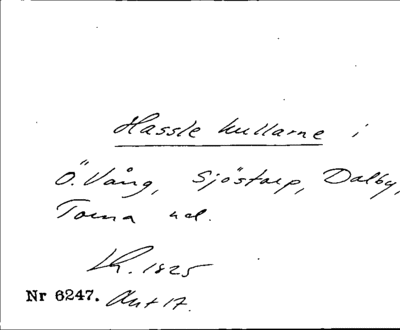 Hassle kullarne i
Ö. Vång, Sjöstorp, Dalby,
Torna hd.
LR. 1825
Nr 6247. Akt 17.